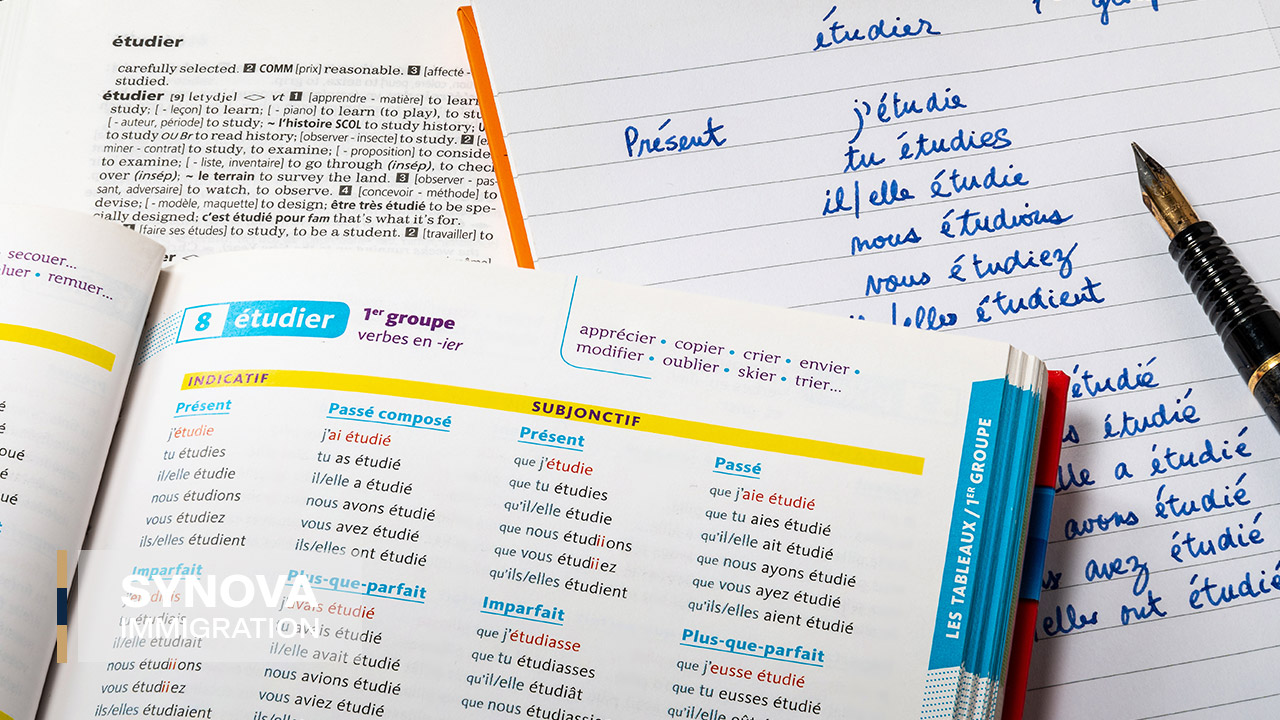 étudier
carefully selected. 2 COMM [prix] reasonable. 3 [affecté -
studied.
étudier [9] [etydje] <> vt 1 [apprendre - matière] to learn
study; [ - leçon] to learn; [ - piano] to learn (to play), to
[ - auteur, période] to study; ~ l'histoire SCOL to study history;
to study OU Br to read history; [observer - insecte] to study. 2
miner - contrat] to study, to examine; [ - proposition] to
to examine; [ - liste, inventaire] to go through (insép), to
over (insép); ~ le terrain to survey the land. 3 [observer - pas-
sant, adversaire] to watch, to observe. 4 [concevoir - méthode] to
devise; [ - modèle, maquette] to design; être très étudié to be spe-
cially designed; c'est étudié pour fam that's what it's for.
[faire ses études] to study, to be a student. 2 [travailler] to
étudier
Présent
j'étudie
tu étudies
il/elle étudie
nous étudions
vous étudiez
/elles étudient
étudié
étudié
a étudié
avons étudié
avez étudié
elles ont étudié
secouer...
remuer...
8 étudier
1er groupe
verbes en -ier
apprécier • copier • crier • envier •
modifier • oublier • skier • trier...
INDICATIF
SUBJONCTIF
Présent
j'étudie
tu étudies
il/elle étudie
nous étudions
vous étudiez
ils/elles étudient
Passé composé
j'ai étudié
tu as étudié
il/elle a étudié
nous avons étudié
vous avez étudié
ils/elles ont étudié
Présent
que j'étudie
que tu étudies
qu'il/elle étudie
que nous étudiions
que vous étudiiez
qu'ils/elles étudient
Passé
que j'aie étudié
que tu aies étudié
qu'il/elle ait étudié
que nous ayons étudié
que vous ayez étudié
qu'ils/elles aient étudié
Imparfait
j'étudiais
tu étudiais
il/elle étudiait
nous étudiions
vous étudiiez
ils/elles étudiaient
Plus-que-parfait
j'avais étudié
tu avais étudié
il/elle avait étudié
nous avions étudié
vous aviez étudié
Imparfait
que j'étudiasse
que tu étudiasses
qu'il/elle étudiât
Plus-que-parfait
que j'eusse étudié
que tu eusses étudié
LES TABLEAUX / 1ER GROUPE
SYNOVA
IMMIGRATION